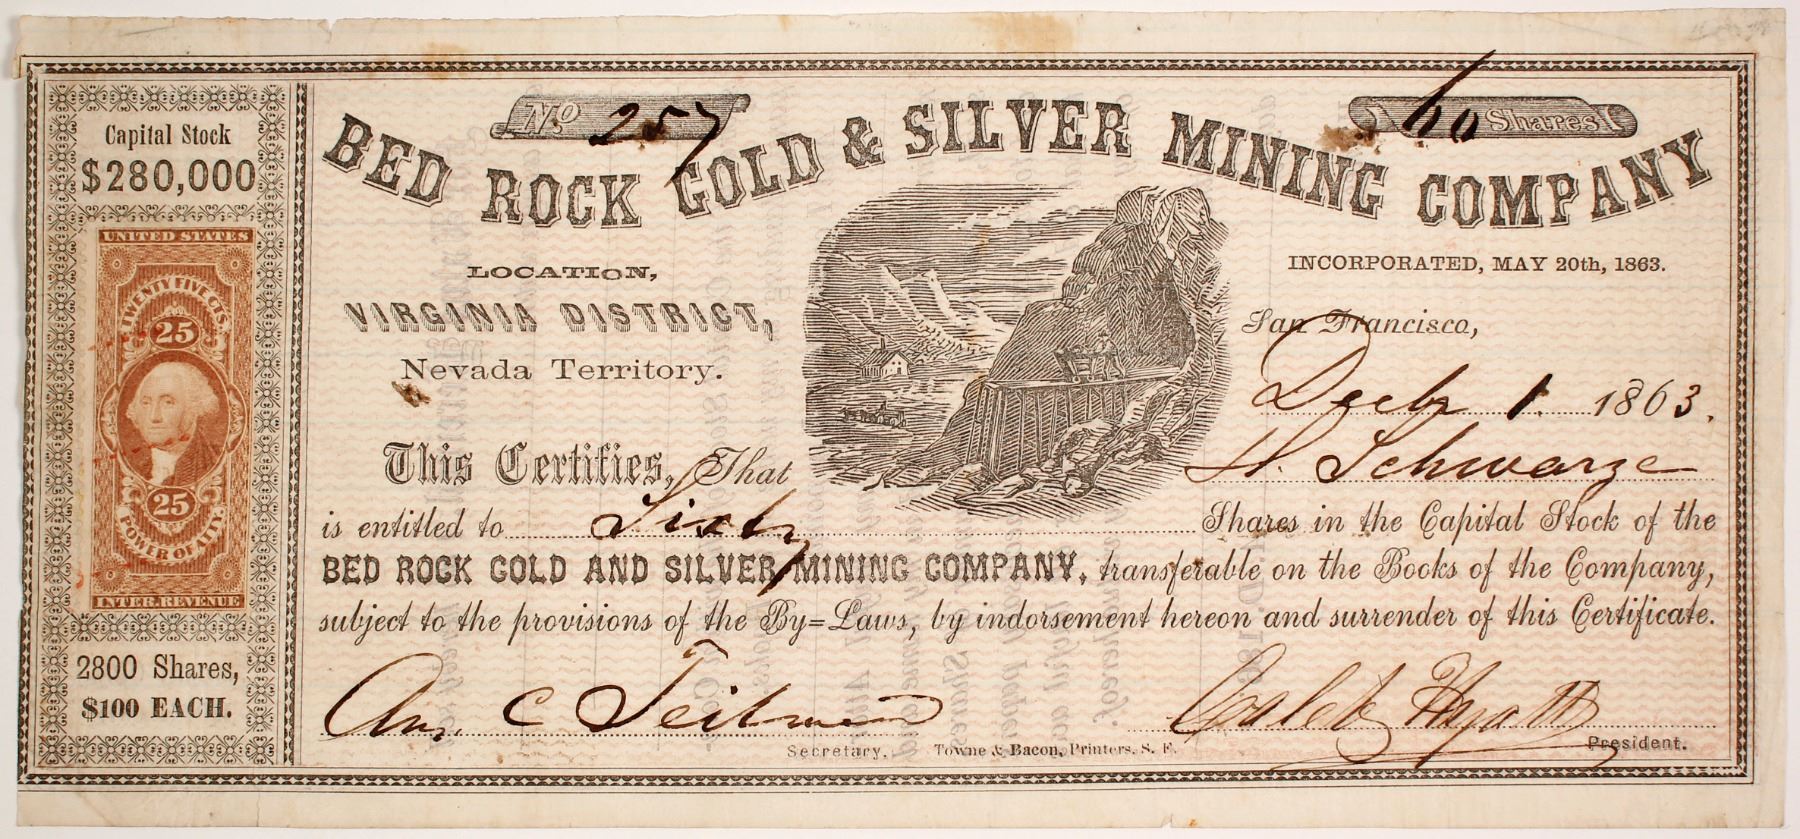 No 257
60 Shares
BED ROCK GOLD & SILVER MINING COMPANY
Capital Stock
$280,000
UNITED STATES
TWENTY FIVE CTS.
25
25
POWER OF AT'Y.
INTER. REVENUE
2800 Shares,
$100 EACH.
LOCATION,
VIRGINIA DISTRICT,
Nevada Territory.
INCORPORATED, MAY 20th, 1863.
San Francisco,
Decbr 1. 1863.
This Certifies, That H. Schwarze
is entitled to Sixty Shares in the Capital Stock of the
BED ROCK GOLD AND SILVER MINING COMPANY, transferable on the Books of the Company,
subject to the provisions of the By=Laws, by indorsement hereon and surrender of this Certificate.
C Caleb Hyatt
Secretary. Towne & Bacon, Printers. S. F. President.